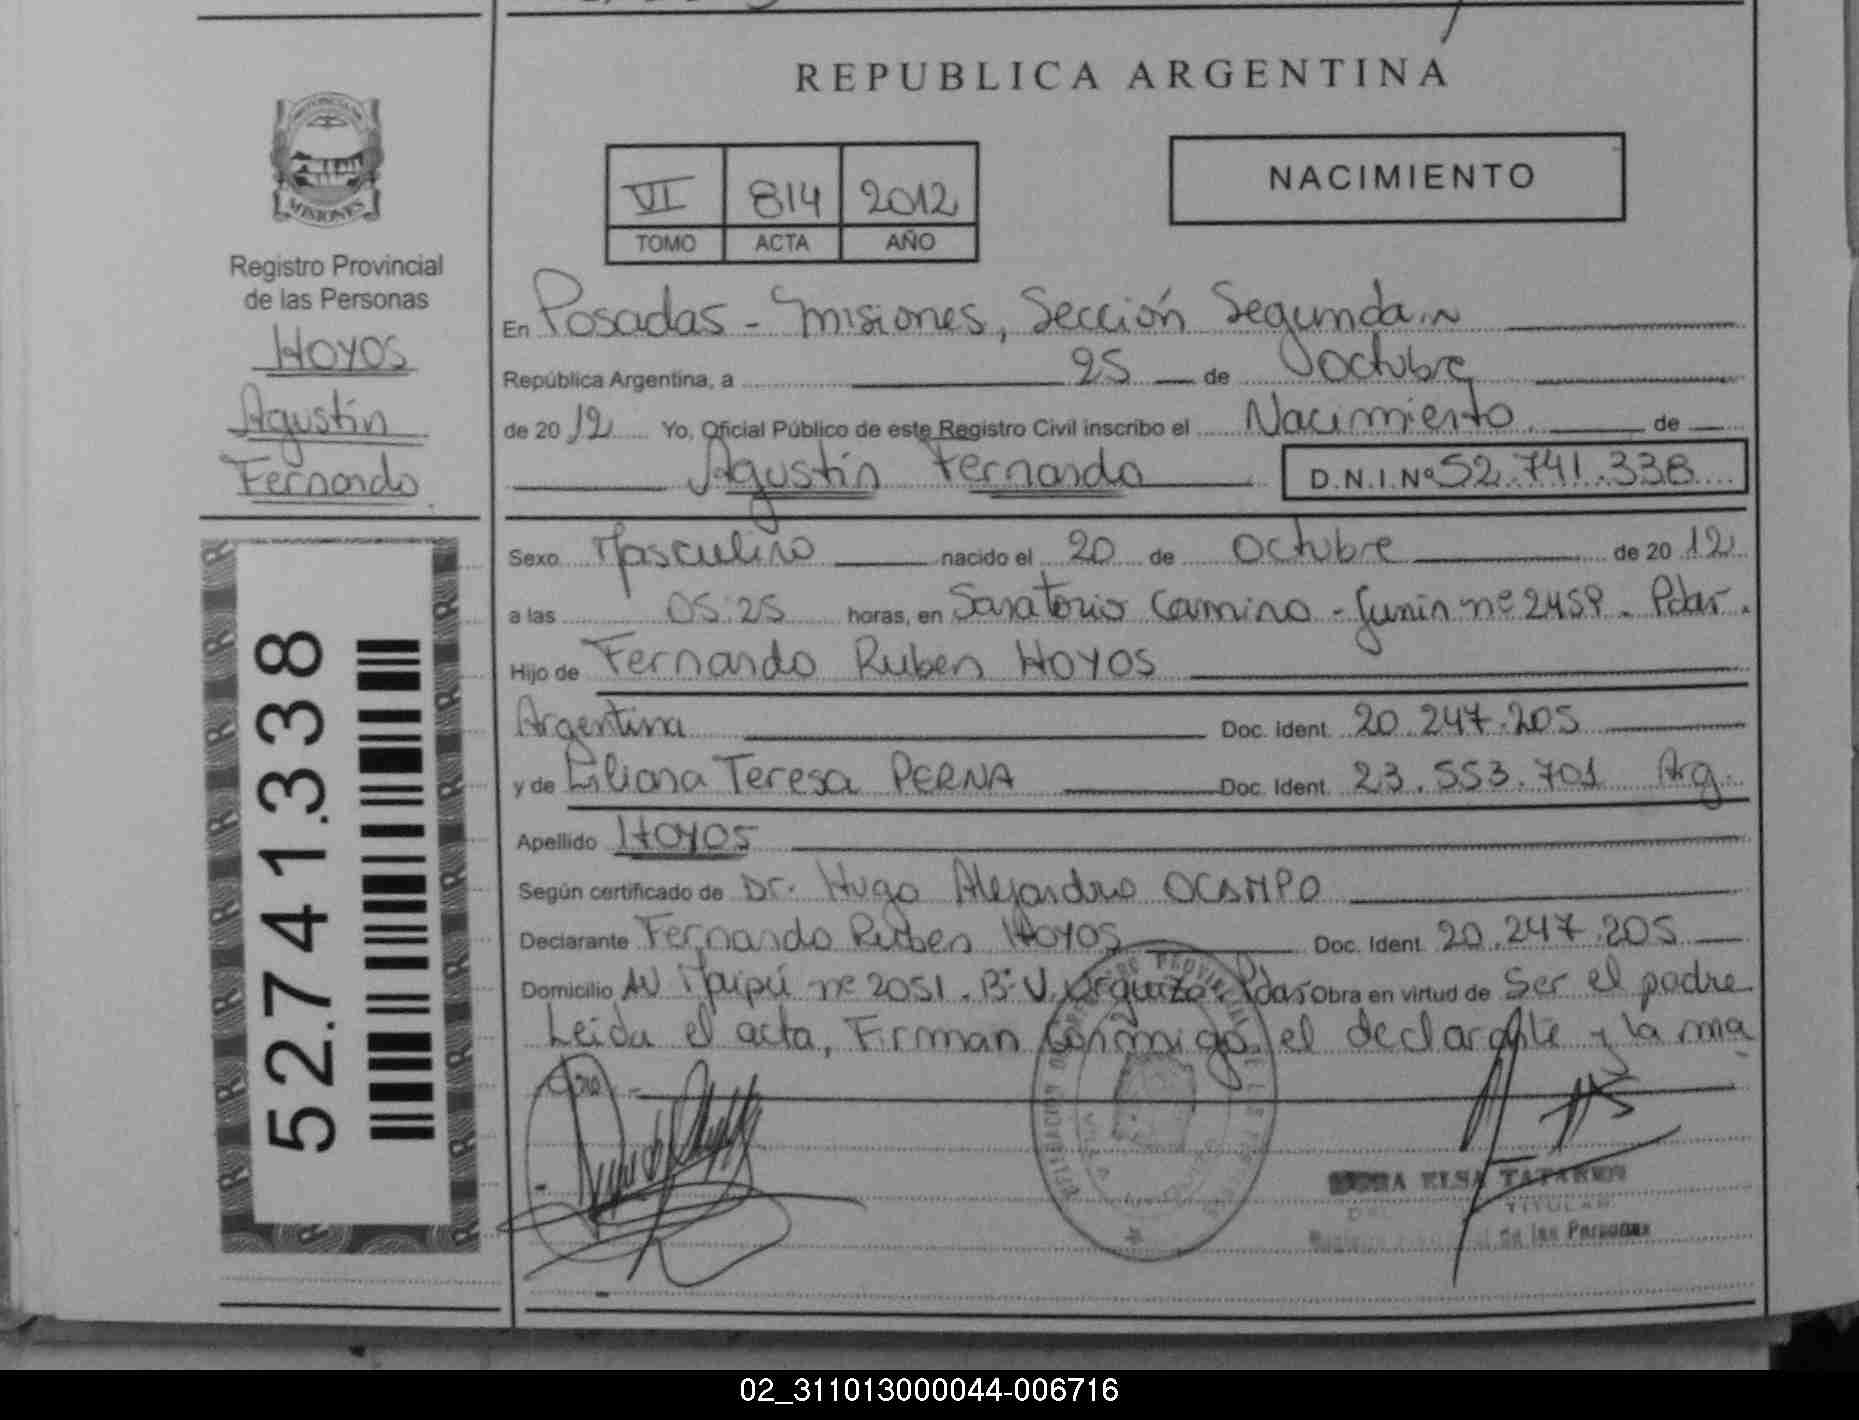 REPUBLICA ARGENTINA
NACIMIENTO
VI 814 2012
TOMO ACTA AÑO
MISIONES
Registro Provincial
de las Personas
HOYOS
Agustín
Fernando
52.741.338
En Posadas - Misiones, Sección Segunda
República Argentina, a 25 de octubre
de 2012 Yo, Oficial Público de este Registro Civil inscribo el Nacimiento de
Agustín Fernando D.N.I.Nº 52.741.338
Sexo Masculino nacido el 20 de Octubre de 2012
a las 05:25 horas, en Sanatorio Camino - Junín nº 2459. Pdas.
Hijo de Fernando Ruben HOYOS
Argentina Doc. Ident. 20.247.205
y de Liliana Teresa PERNA Doc. Ident. 23.553.701 Arg.
Apellido HOYOS
Según certificado de Dr. Hugo Alejandro OCAMPO
Declarante Fernando Ruben HOYOS Doc. Ident. 20.247.205
Domicilio AV Maipú nº 2051. Bº V. Urquiza. Pdas Obra en virtud de Ser el padre
Leida el acta, Firman conmigo el declarante y la ma
dre.
ELSA
TITULAR
de las Personas
02_311013000044-006716